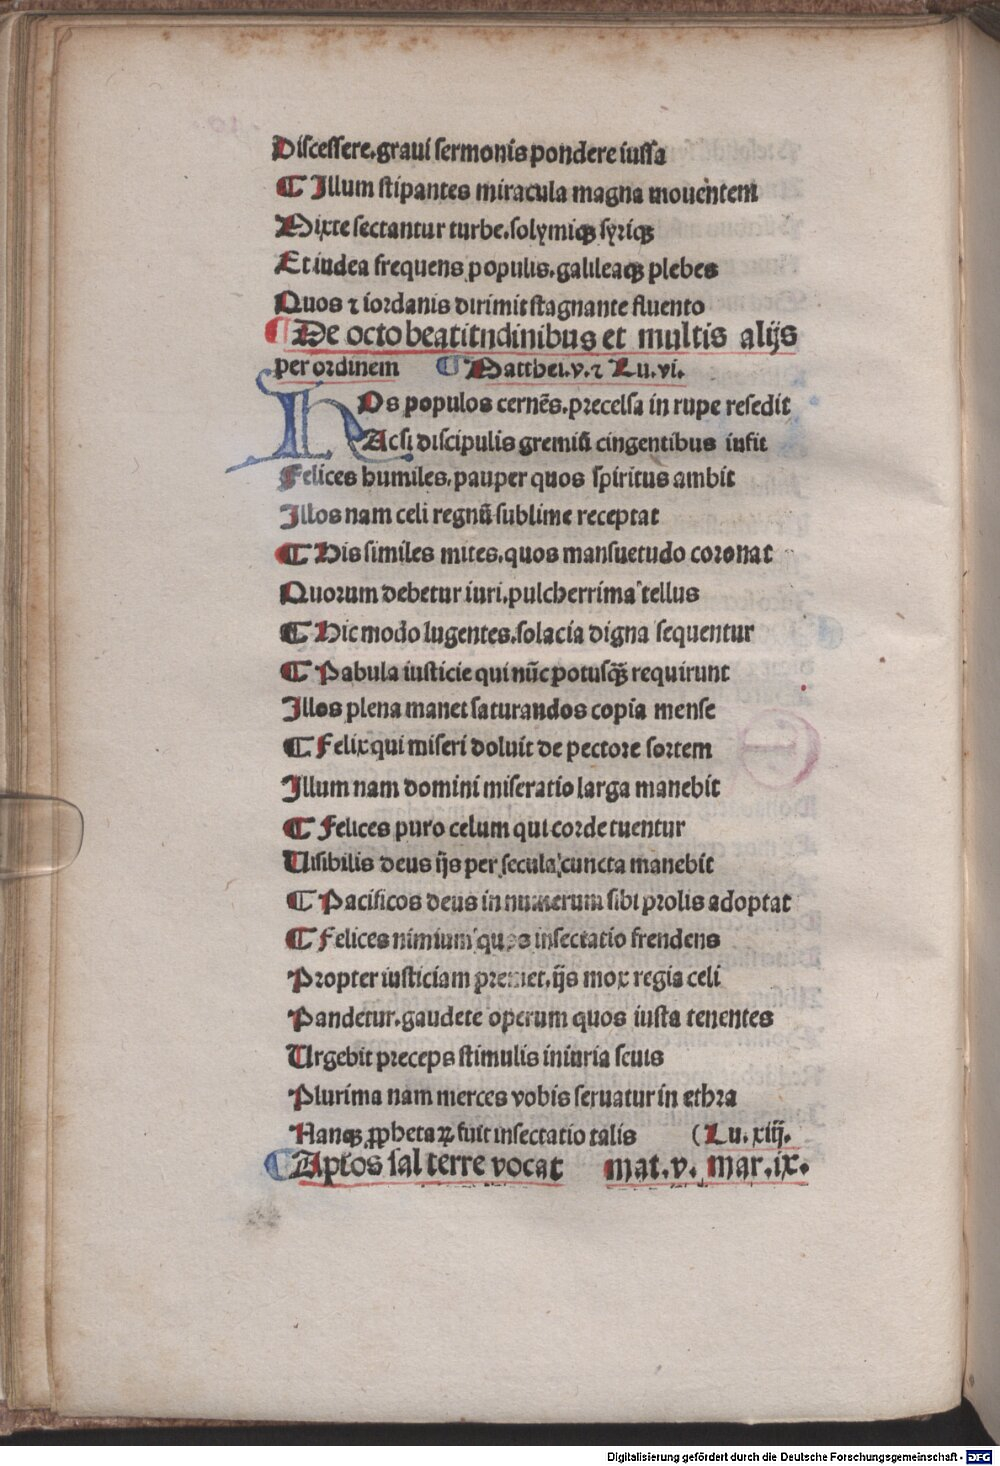 Discessere.graui sermonis pondere iussa
¶ Illum stipantes miracula magna mouentem
Mixte sectantur turbe.solymiqꝫ syriqꝫ
Et iudea frequens populis.galileaqꝫ plebes
Quos ⁊ iordanis dirimit stagnante fluento
¶ De octo beatitndinibus et multis alijs
per ordinem ¶ Matthei.v.⁊ Lu.vi.
HOs populos cernēs.precelsa in rupe resedit
Ac si discipulis gremiū cingentibus infit
Felices humiles.pauper quos spiritus ambit
Illos nam celi regnū sublime receptat
¶ His similes mites.quos mansuetudo coronat
Quorum debetur iuri.pulcherrima tellus
¶ Hic modo lugentes.solacia digna sequentur
¶ Pabula iusticie qui nūc potusqꝫ requirunt
Illos plena manet saturandos copia mense
¶ Felix qui miseri doluit de pectore sortem
Illum nam domini miseratio larga manebit
¶ Felices puro celum qui corde tuentur
Uisibilis deus ijs per secula cuncta manebit
¶ Pacificos deus in numerum sibi prolis adoptat
¶ Felices nimium quos insectatio frendens
Propter iusticiam premet.ijs mox regia celi
Pandetur.gaudete operum quos iusta tenentes
Urgebit preceps stimulis iniuria scuis
Plurima nam merces vobis seruatur in ethra
Nanqꝫ ꝓphetaꝝ fuit insectatio talis (Lu.xiiij.
¶ Aptos sal terre vocat mat.v. mar.ix.
Digitalisierung gefördert durch die Deutsche Forschungsgemeinschaft - DFG